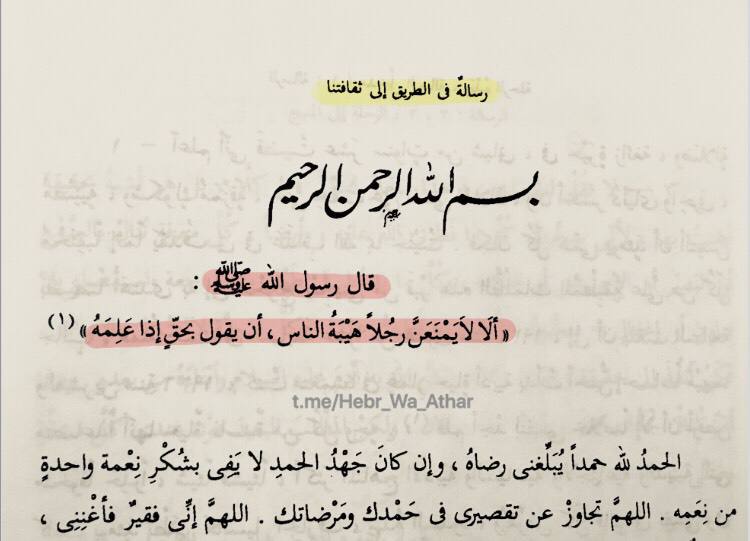 رسالةٌ فى الطريق إلى ثقافتنا
بسم الله الرحمن الرحيم
قال رسول الله ﷺ :
« أَلَا لاَ يَمْنَعَنَّ رجُلاً هَيْبَةُ الناس ، أن يقول بحَقٍّ إذا عَلِمَهُ » (١)
t.me/Hebr_Wa_Athar
الحمدُ لله حمداً يُبَلِّغنى رضاهُ ، وإن كانَ جَهْدُ الحمدِ لا يَفِى بشُكْرِ نِعْمة واحدةٍ
من نِعَمِه . اللهمَّ تجاوزْ عن تقصيرى فى حَمْدك ومَرْضاتك . اللهمَّ إنِّى فقيرٌ فأغْنِنِى ،